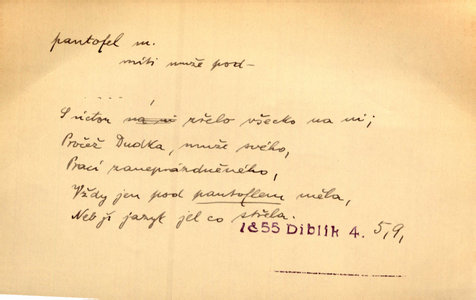 pantofel m.
míti muže pod —
S úctou na ni zřelo všecko na ni;
Pročež Dudka, muže svého,
Prací zaneprázdněného,
Vždy jen pod pantoflem měla,
Neb jí jazyk jel co střela.
1855 Diblík 4. 5,9,